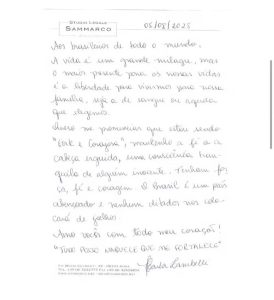 STUDIO LEGALE
SAMMARCO
05/08/2025
Aos brasileiros de todo o mundo.
A vida é um grande milagre, mas
o maior presente para as nossas vidas
é a liberdade para vivermos para nossa
família, seja a de sangue ou aquela
que elegemos.
Quero me pronunciar que estou sendo
forte e corajosa, mantendo a fé e a
cabeça erguida, uma consciência tran-
quila de alguém inocente. Tenham for-
ça, fé e coragem. O Brasil é um país
abençoado e nenhum ditador nos colo-
cará de joelhos
Amo vocês com todo meu coração!
"TUDO POSSO NAQUELE QUE ME FORTALECE"